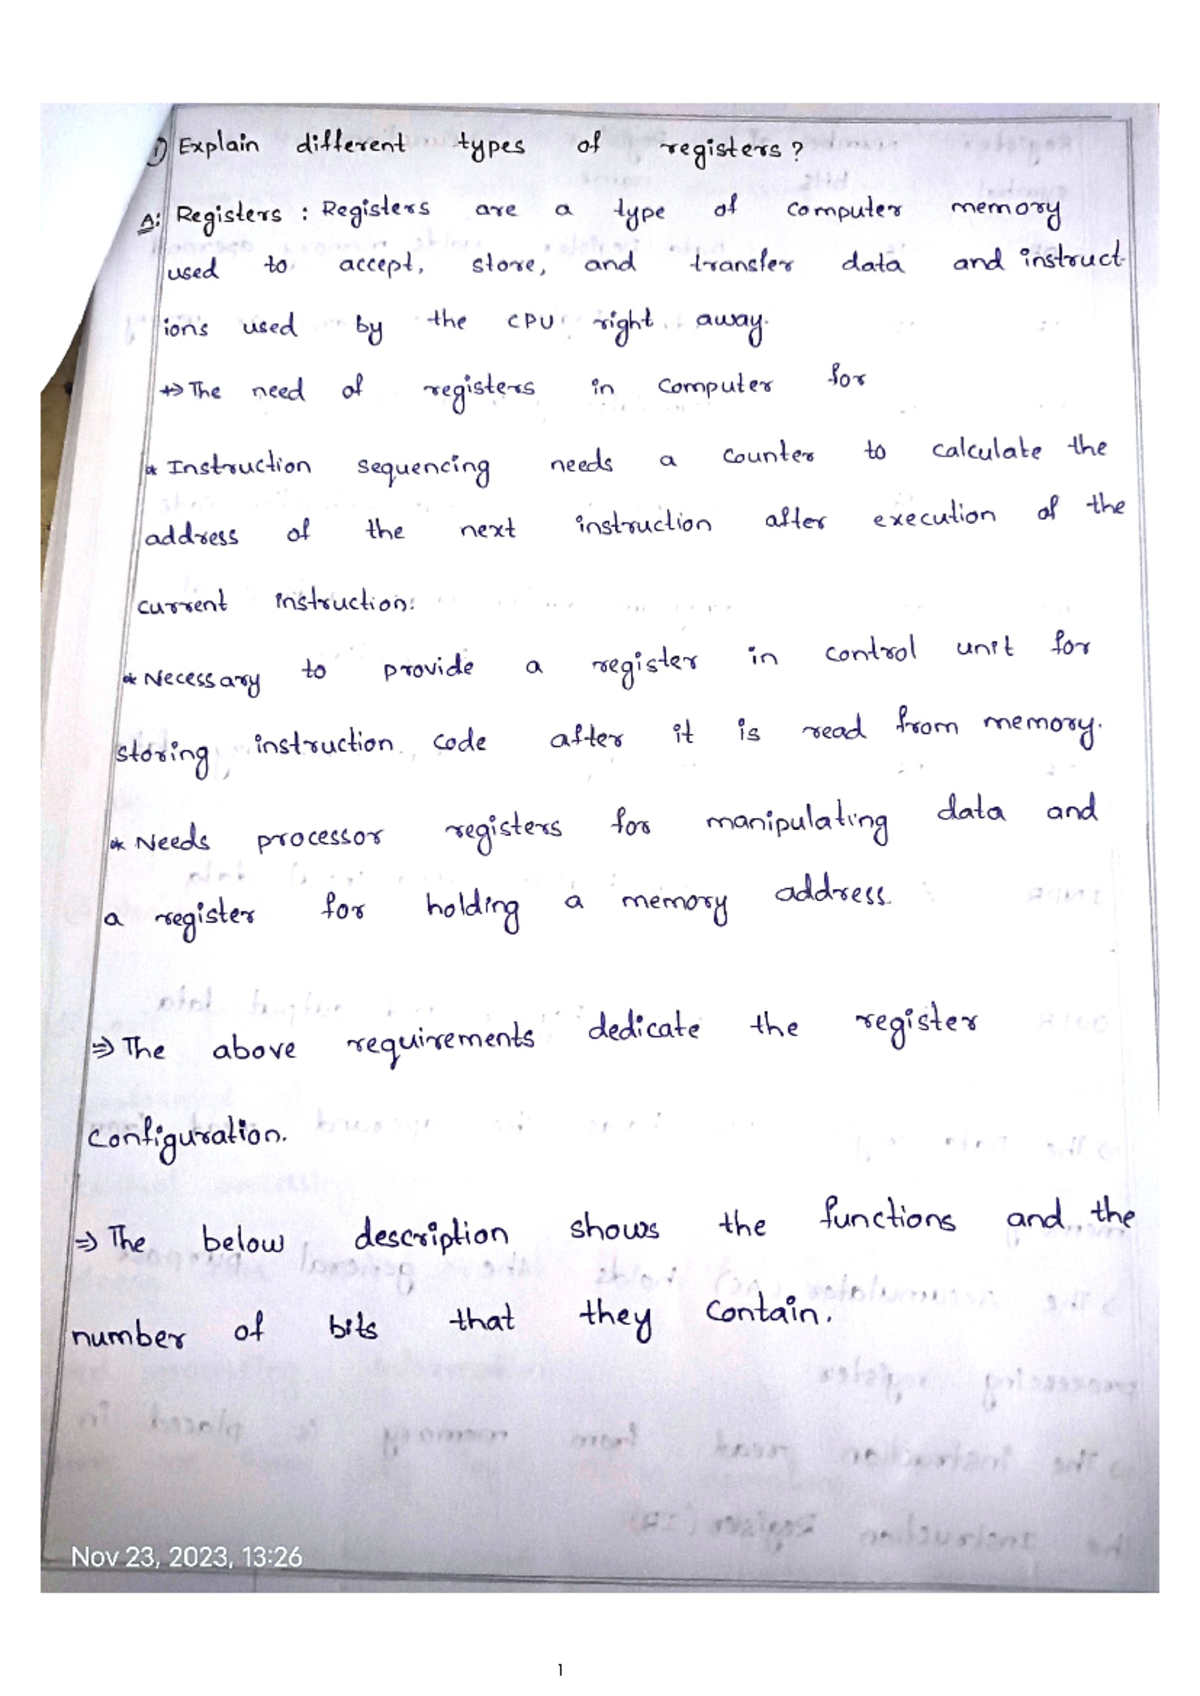 1) Explain different types of registers?
A: Registers : Registers are a type of computer memory
used to accept, store, and transfer data and instruct-
ions used by the CPU right away.
The need of registers in computer for
* Instruction sequencing needs a counter to calculate the
address of the next instruction after execution of the
current instruction.
* Necessary to provide a register in control unit for
storing instruction code after it is read from memory.
* Needs processor registers for manipulating data and
a register for holding a memory address.
⇒ The above requirements dedicate the register
configuration.
⇒ The below description shows the functions and the
number of bits that they contain.
Nov 23, 2023, 13:26
1